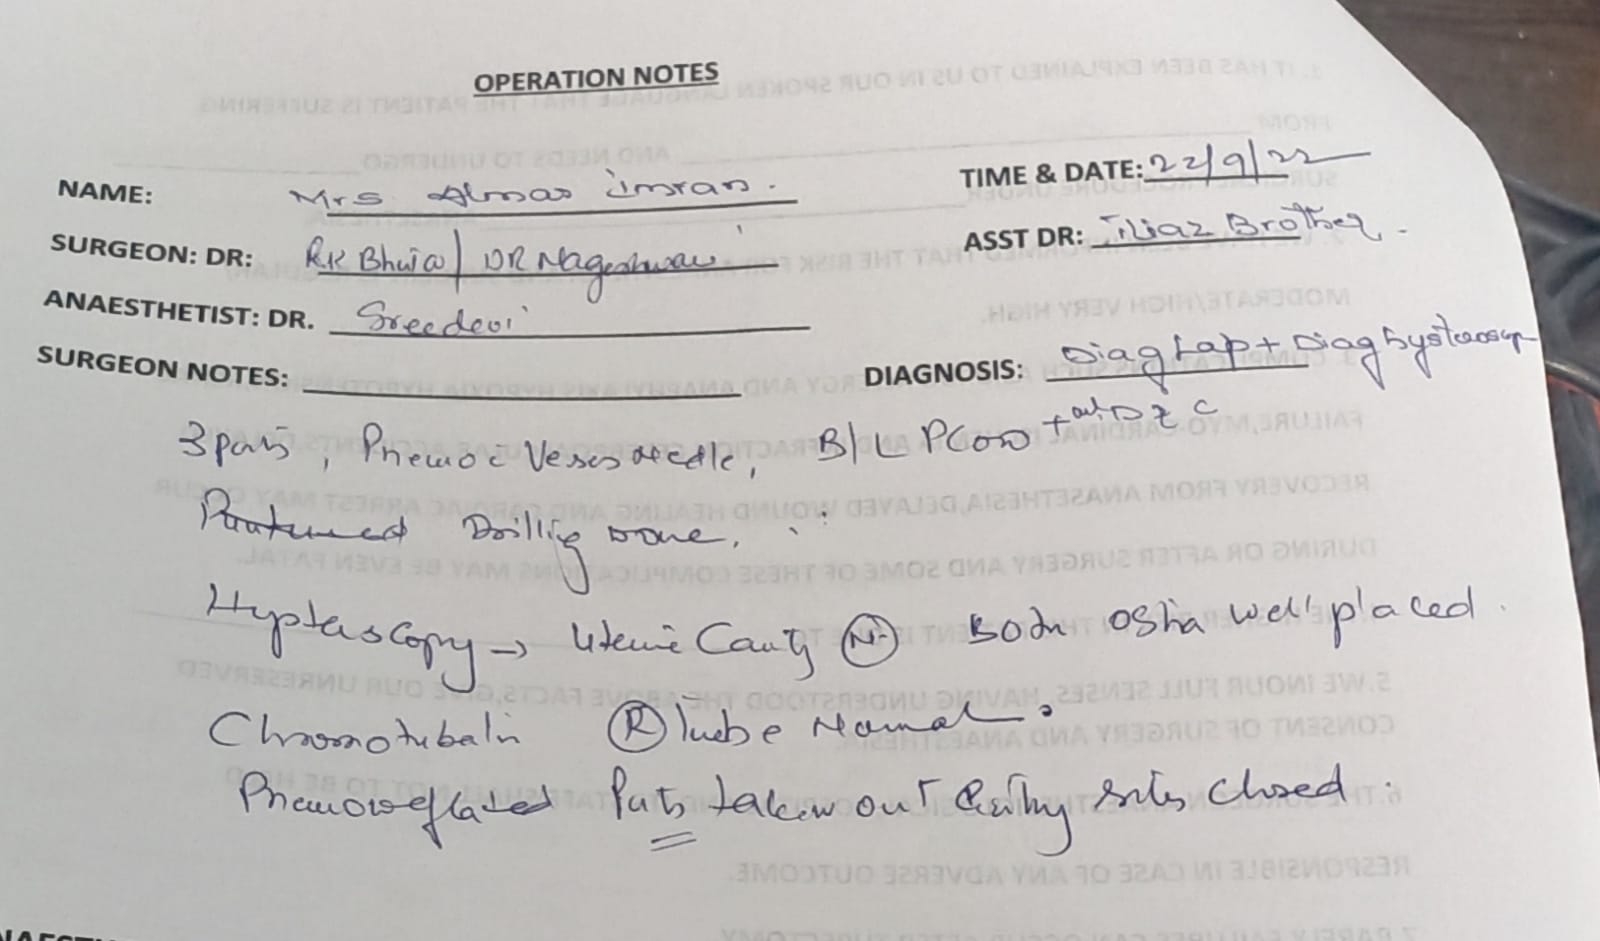 OPERATION NOTES
NAME: Mrs Almas imran.
TIME & DATE: 22/9/22
SURGEON: DR: RK Bhuia / DR Nageshwari
ASST DR: iliaz Brother.
ANAESTHETIST: DR. Sreedevi
SURGEON NOTES:
DIAGNOSIS: Diag Lap + Diag hysteroscop
+ D & C
3 ports, Pnemo c Veses needle, B/L PCOD
Drilling Done.
Hypterscopy → Uterine Cavity (N) Both ostia well placed.
Chromotubatn (R) tube Normal.
Pnemo Ports taken out Entry sites closed.